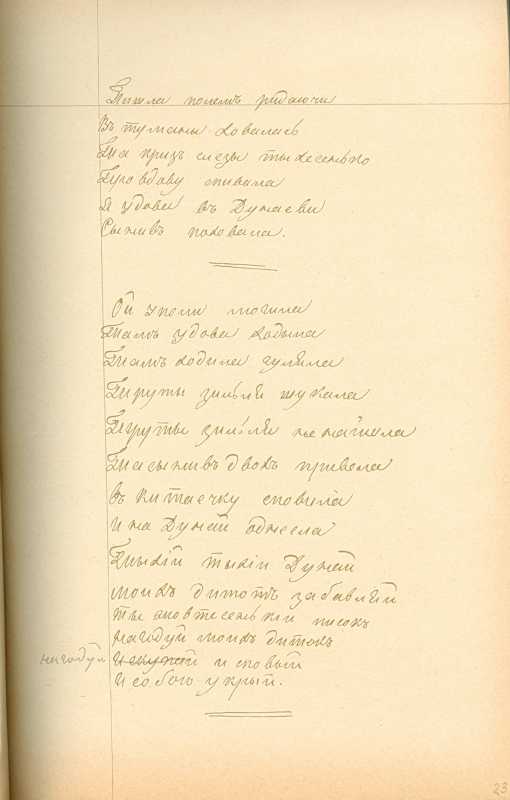 Пишла полемъ рыдаючи
Въ туманы ховалась
Та кризь слезы тыхесенько
Про вдову спивала
Я удова въ Дунаеви
Сынивъ поховала.
Ой у поли могила
Тамъ удова ходыла
Тамъ ходила гуляла
Труты зилля шукала
Труты зилля не найшла
Та сынивъ двохъ привела
въ китаечку сповила
И на Дунай однесла
Тыхій тыхій Дунай
моихъ дитокъ забавляй
ты жовтесенькій писокъ
Нагодуй моихъ дитокъ
нагодуй И скупай и сповый
И собою укрый.
23